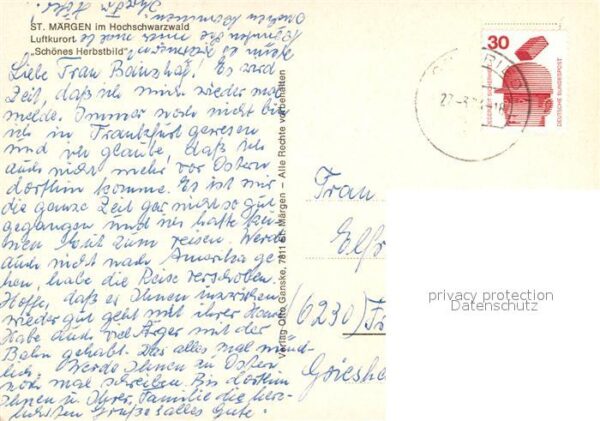 ST. MÄRGEN im Hochschwarzwald
Luftkurort
„Schönes Herbstbild"
Liebe Frau Es wird
Zeit, daß ich mich wieder mal
melde. Immer noch nicht bin
ich in Frankfurt gewesen
und ich glaube, daß ich
auch nicht mehr vor Ostern
dorthin komme. Es ist mir
die ganze Zeit gar nicht so gut
gegangen und ich hatte kei-
nen zum reisen. Werde
auch nicht nach Amerika ge-
hen, habe die Reise verschoben.
Hoffe, daß es Ihnen inzwischen
wieder gut geht mit Ihrer
Habe auch viel Ärger mit der
Bahn gehabt. Das alles mal münd-
lich. Werde Ihnen zu Ostern
noch mal schreiben. Bis dorthin
Ihnen u. Ihrer Familie die herz-
lichsten Grüße & alles Gute.
Verlag Otto Ganske, 7811 St. Märgen – Alle Rechte vorbehalten
30
DEUTSCHE BUNDESPOST
Frau
Elfr
(6230) Fr
Griesh
privacy protection
Datenschutz